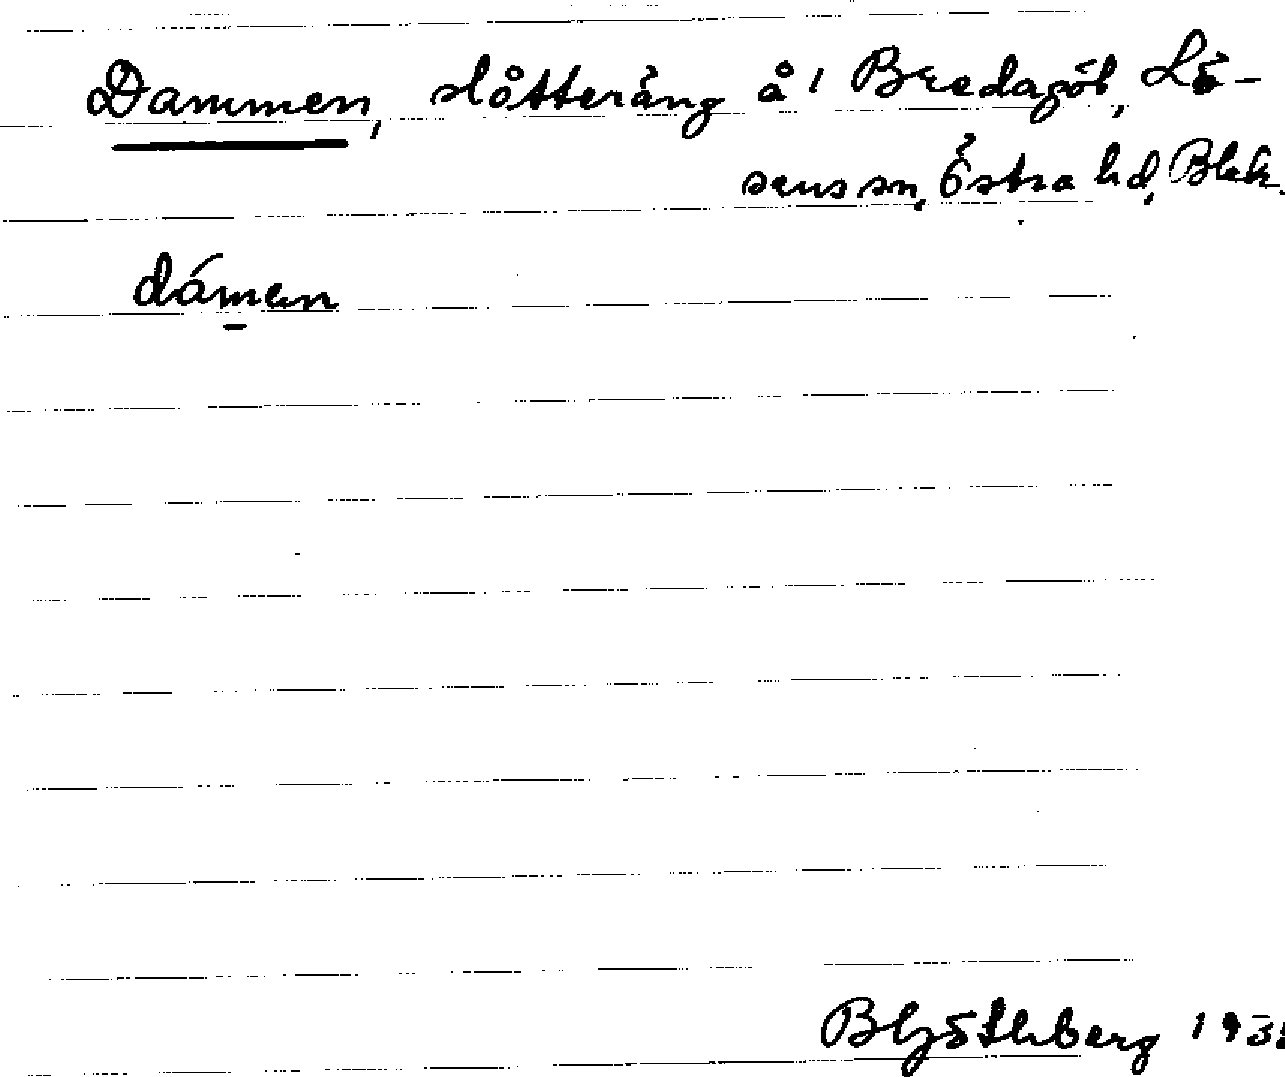 Dammen, slåtteräng å 1 Bredagöl, Lö-
sens sn, Östra hd, Blek.
dámen
B Ljsthberg